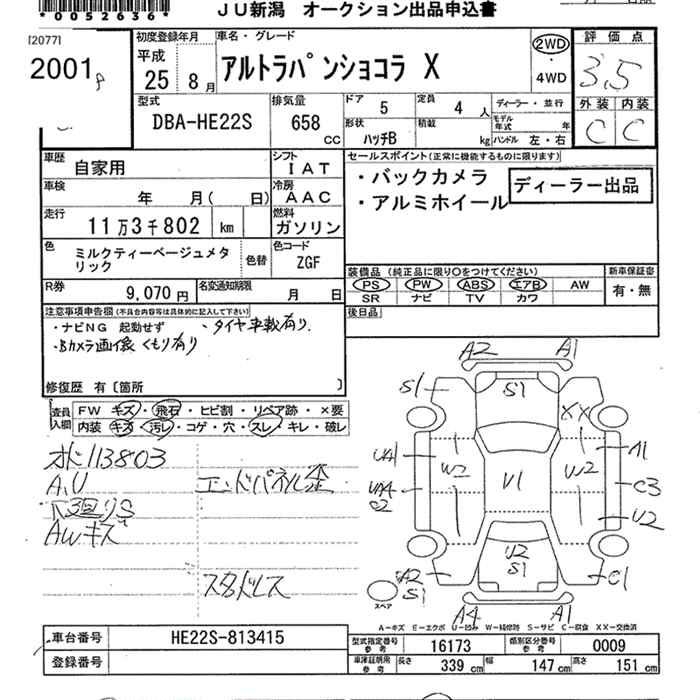 *0052636*
JU新潟 オークション出品申込書
[2077]
2001
初度登録年月
平成
25 8 月
車名・グレード
アルトラパンショコラ X
2WD
・
4WD
評価点
3.5
外装 内装
C C
型式
DBA-HE22S
排気量
658 CC
ドア 5
定員 4 人
形状 ハッチB
積載 kg
ディーラー・並行
モデル年式 年
ハンドル 左・右
車歴 自家用
シフト IAT
車検 年 月( 日)
冷房 AAC
走行 11万3千802 km
燃料 ガソリン
色 ミルクティーベージュメタリック
色替
色コード ZGF
R券 9,070 円
名変通知期限 月 日
セールスポイント(正常に機能するものに限ります)
・バックカメラ
・アルミホイール
ディーラー出品
装備品 (純正品に限り○をつけてください)
新車保証書
PS PW ABS エアB AW
有・無
SR ナビ TV カワ
後日品
注意事項申告欄(不具合内容等は具体的に記入して下さい)
・ナビNG 起動せず ・タイヤ車載有り
・Bカメラ画像くもり有り
修復歴 有〔箇所 〕
査員入欄
FW キズ・飛石・ヒビ割・リペア跡・×要
内装 キズ・汚レ・コゲ・穴・スレ・キレ・破レ
113803
A,U
エンドパネル歪
AWキズ
スタッドレス
A2 A1
S1 S1
XX
UA1 W2 V1 W2 A1
C2 C3
U2
A2 U2 C1
S1 S1
スペア
A4 A1
A-キズ E-エクボ U-凹み W-補修跡 S-サビ C-腐食 XX-交換済
車台番号 HE22S-813415
登録番号
型式指定番号 参考 16173
類別区分番号 参考 0009
車庫証明用 参考
長さ 339 cm
幅 147 cm
高さ 151 cm